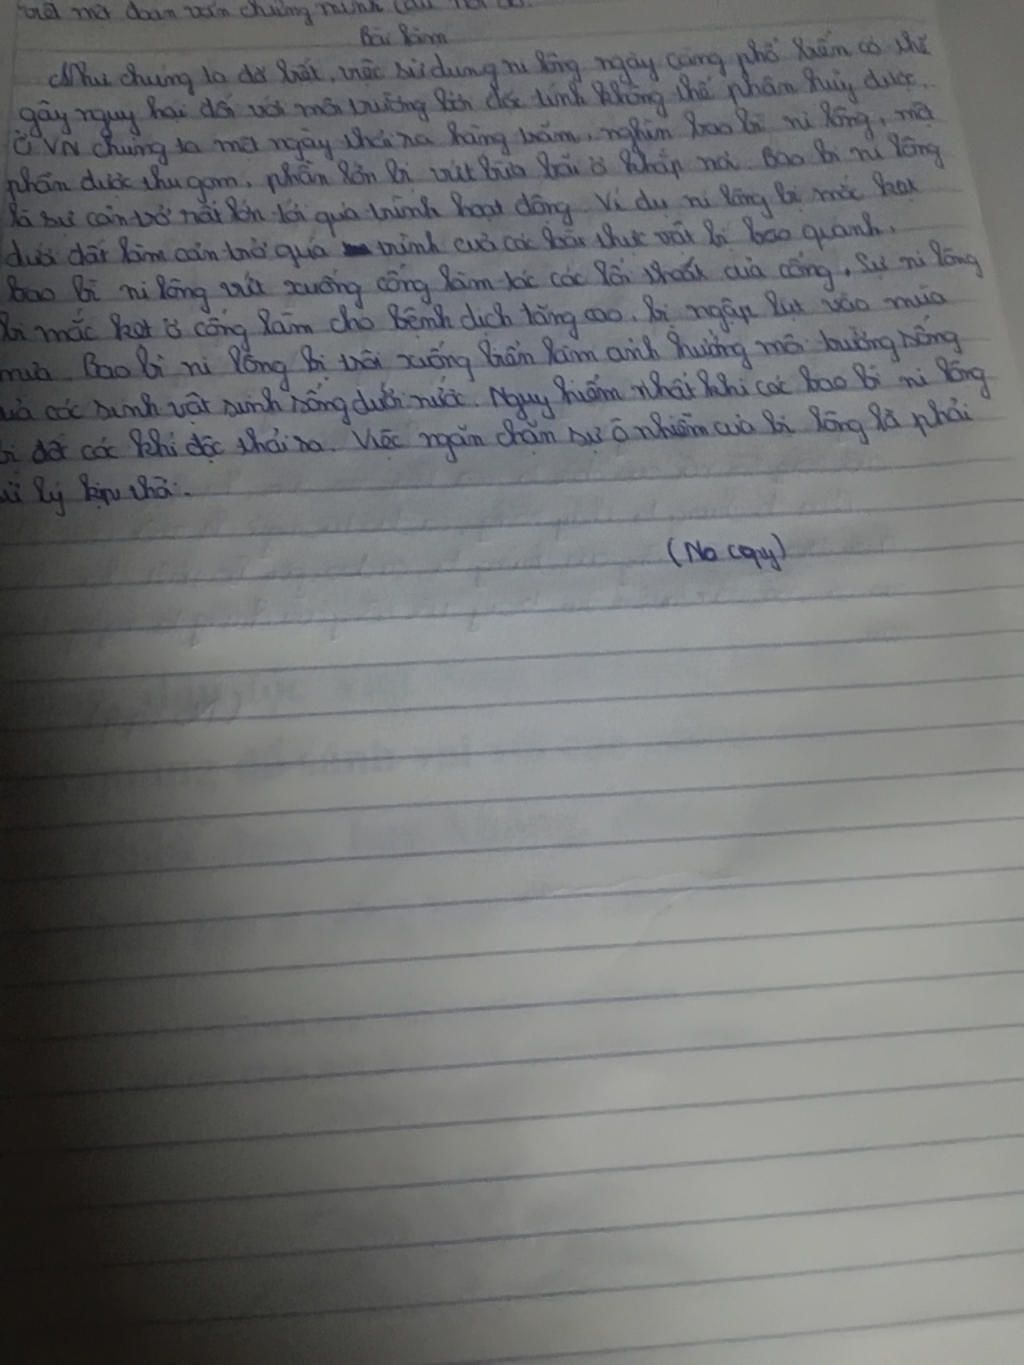 viết một đoạn văn chứng minh câu nói đó.
Bài làm
Như chúng ta đã biết, việc sử dụng ni lông ngày càng phổ biến có thể
gây nguy hại đối với môi trường bởi đặc tính không thể phân hủy được.
Ở VN chúng ta một ngày thải ra hàng trăm, nghìn bao bì ni lông, một
phần được thu gom, phần lớn bị vứt bừa bãi ở khắp nơi. Bao bì ni lông
là sự cản trở rất lớn tới quá trình hoạt động. Ví dụ ni lông bị mắc kẹt
dưới đất làm cản trở quá trình của các loài thực vật bị bao quanh.
Bao bì ni lông vứt xuống cống làm tắc các lối thoát của cống. Sự ni lông
bị mắc kẹt ở cống làm cho bệnh dịch tăng cao. bị ngập lụt vào mùa
mưa. Bao bì ni lông bị trôi xuống biển làm ảnh hưởng môi trường sống
và các sinh vật sinh sống dưới nước. Nguy hiểm nhất khi các bao bì ni lông
bị đốt các khí độc thải ra. Việc ngăn chặn sự ô nhiễm của bị lông là phải
xử lý kịp thời.
(No copy)